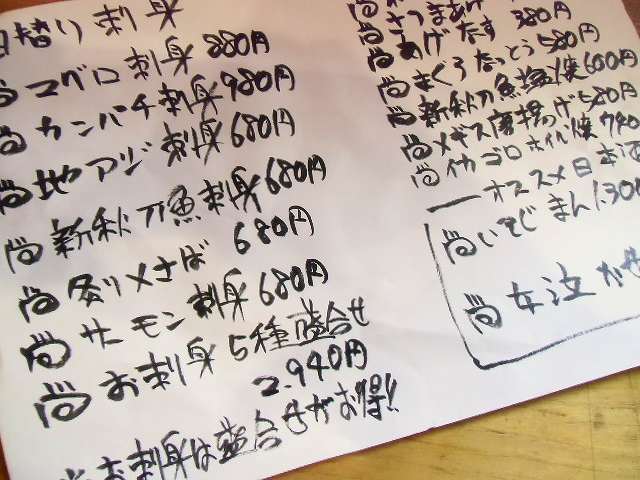 日替り刺身
マグロ刺身 880円
カンパチ刺身 980円
地アジ刺身 680円
新秋刀魚刺身 680円
炙り〆さば 680円
サーモン刺身 680円
お刺身5種盛合せ
2.940円
お刺身は盛合せがお得!!
さつまあげ
あげなす 380円
まぐろなっとう 580円
新秋刀魚塩焼 600円
メギス唐揚げ 580円
イカゴロホイル焼
オススメ日本酒
女泣かせ